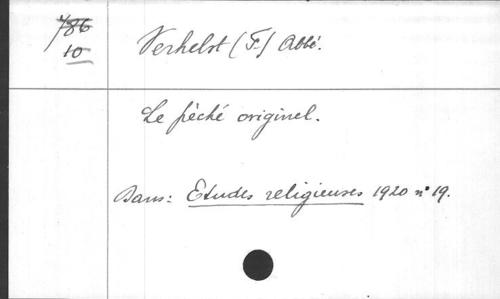 786
10
Verhelst (F.) Abbé.
Le péché originel.
Dans: Etudes religieuses 1920 n° 19.